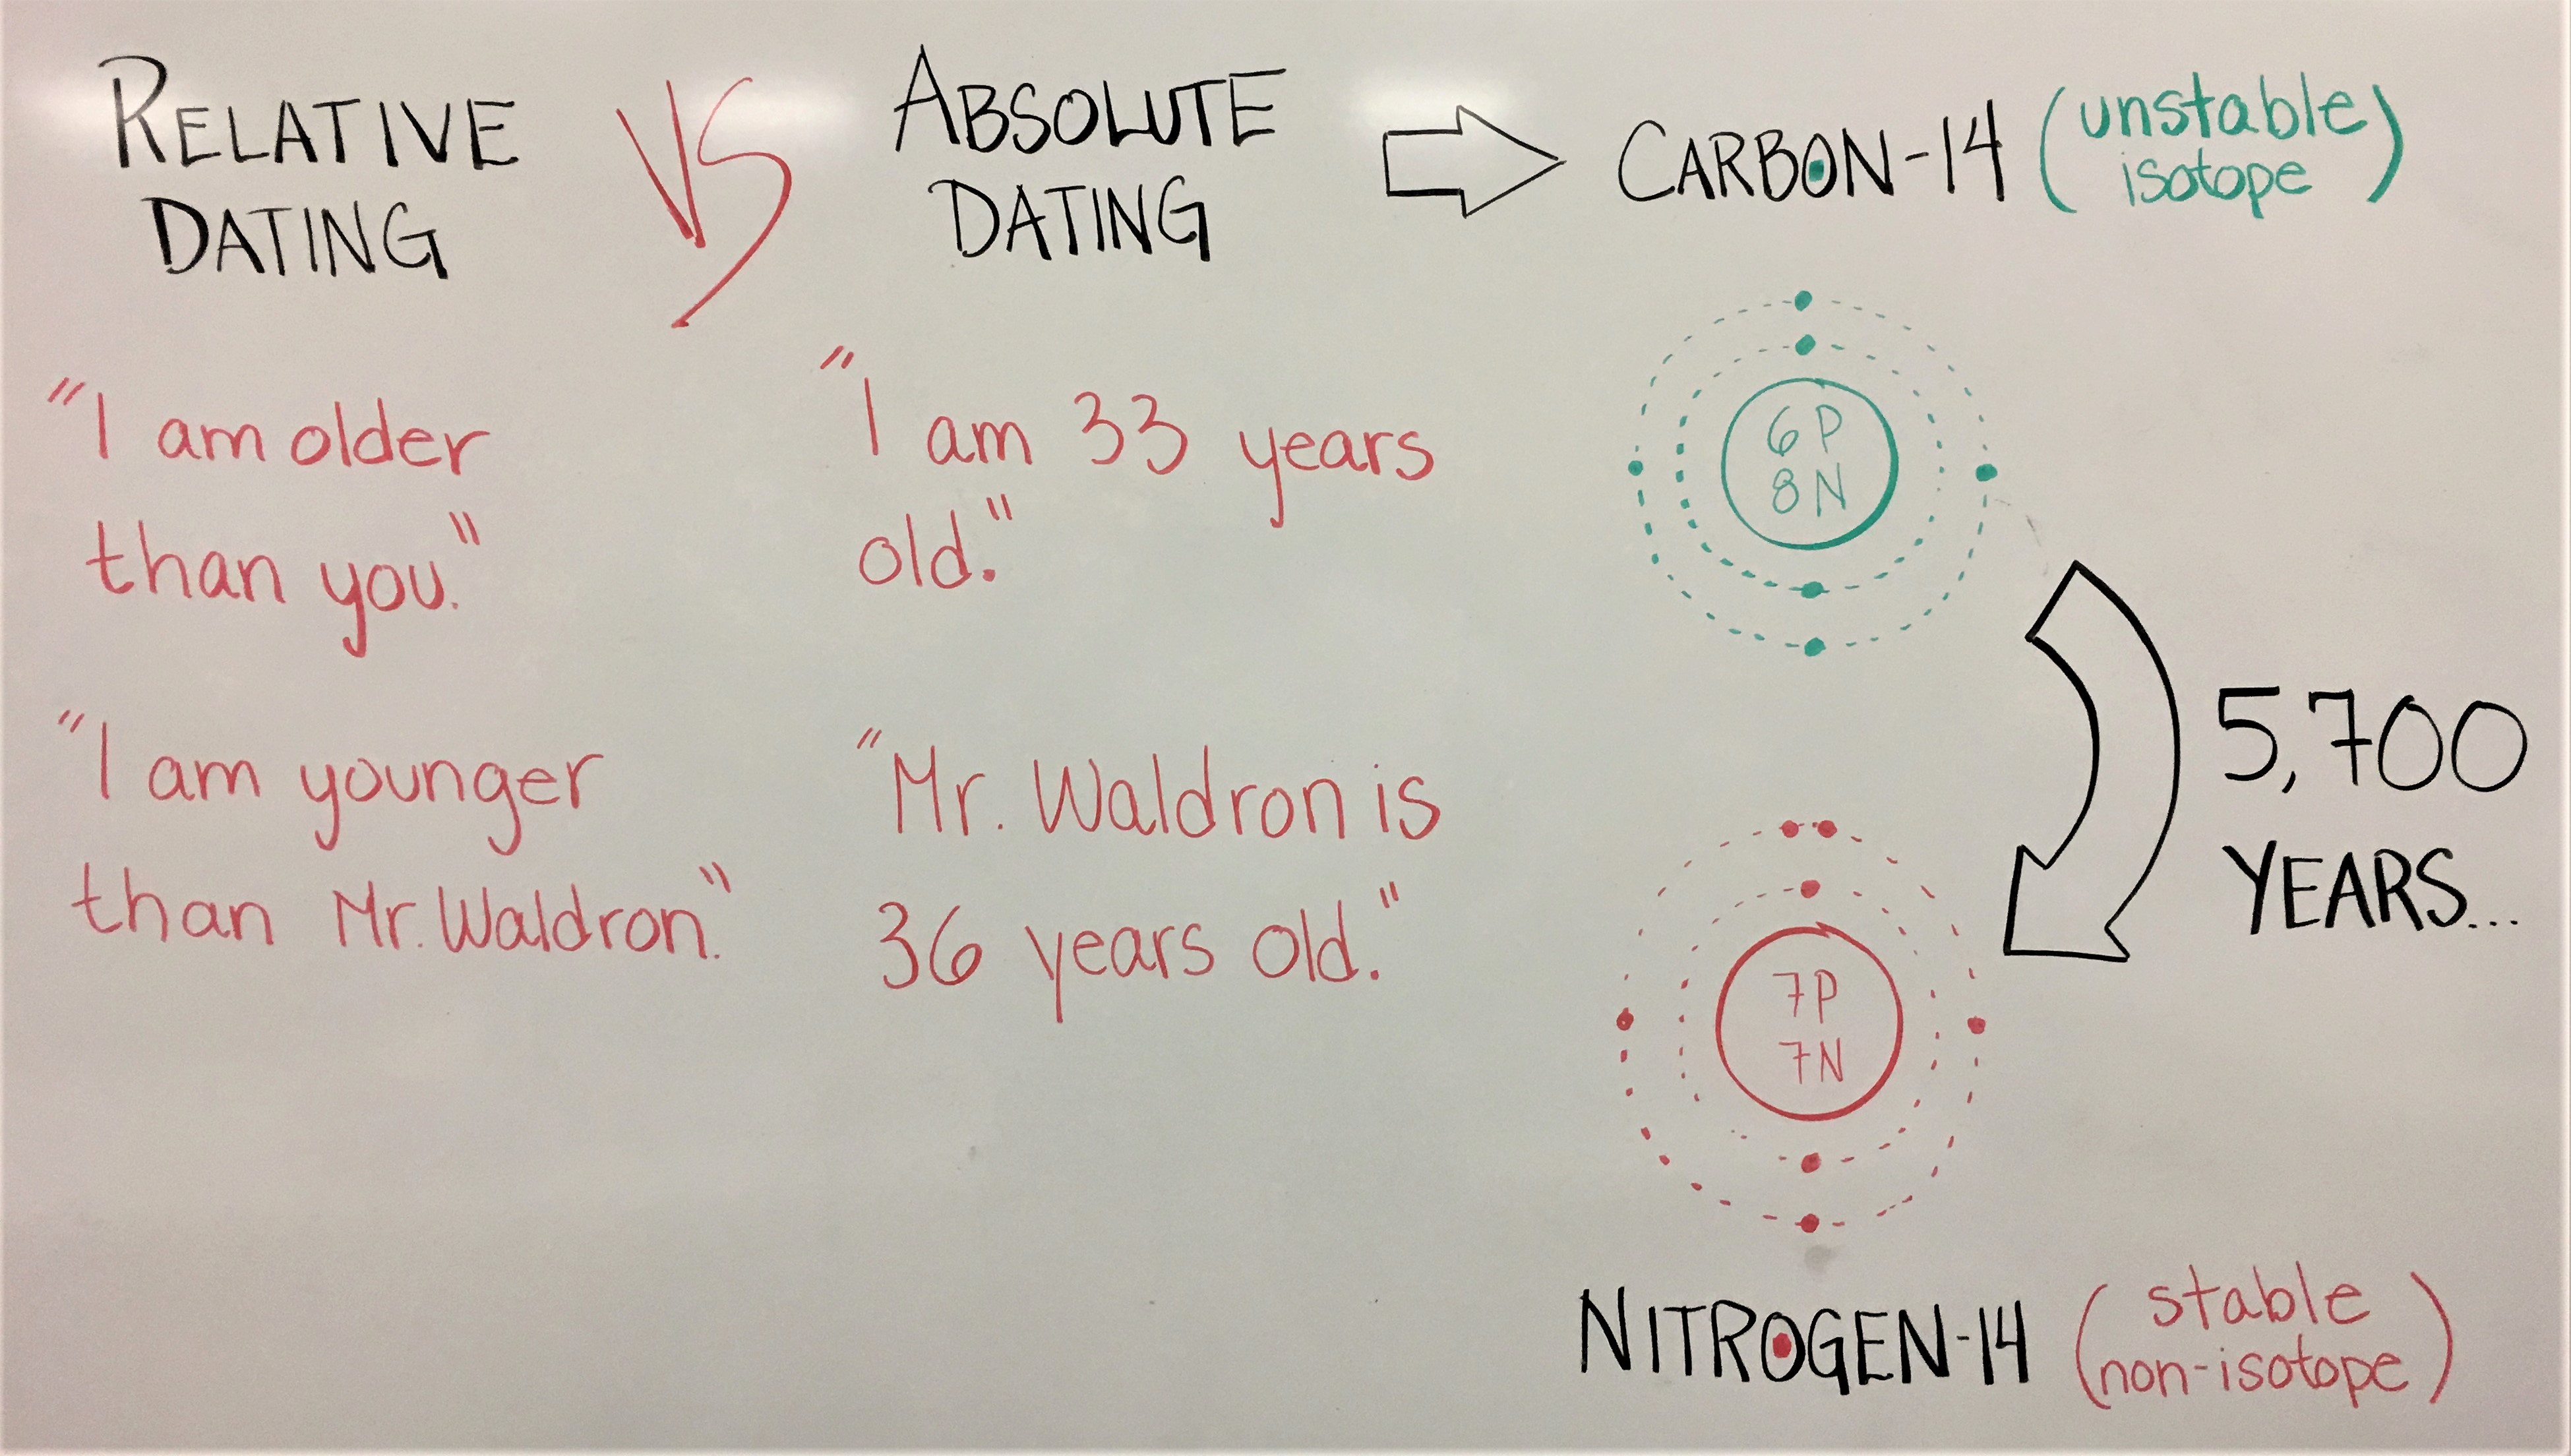 RELATIVE
DATING
VS
ABSOLUTE
DATING
CARBON-14 (unstable
isotope)
"I am older
than you."
"I am younger
than Mr. Waldron."
"I am 33 years
old."
"Mr. Waldron is
36 years old."
6P
8N
5,700
YEARS...
7P
7N
NITROGEN-14 (stable
non-isotope)